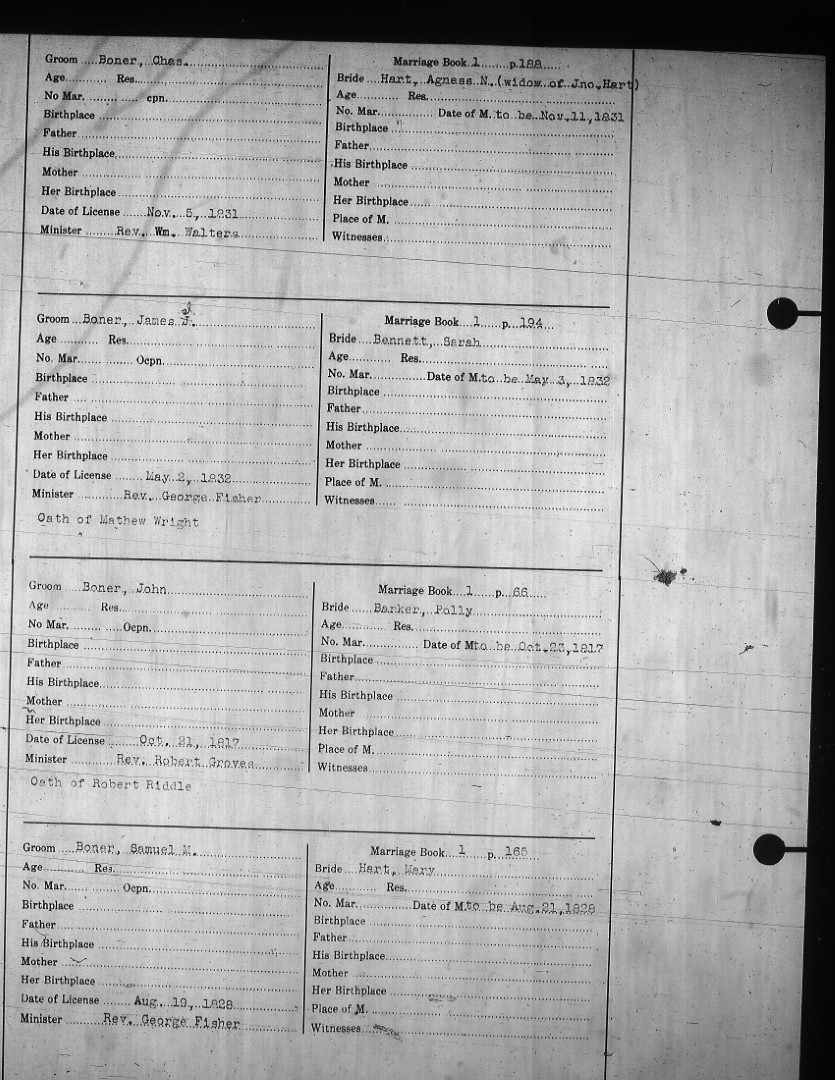 Groom Boner, Chas.
Age Res.
No Mar. cpn.
Birthplace
Father
His Birthplace
Mother
Her Birthplace
Date of License Nov. 5, 1831
Minister Rev. Wm. Walters
Marriage Book 1 p. 188
Bride Hart, Agness N. (widow of Jno. Hart)
Age Res.
No. Mar. Date of M. to be Nov. 11, 1831
Birthplace
Father
His Birthplace
Mother
Her Birthplace
Place of M.
Witnesses
Groom Boner, James J.
Age Res.
No. Mar. Ocpn.
Birthplace
Father
His Birthplace
Mother
Her Birthplace
Date of License May 2, 1832
Minister Rev. George Fisher
Oath of Mathew Wright
Marriage Book 1 p. 194
Bride Bennett, Sarah
Age Res.
No. Mar. Date of M. to be May 3, 1832
Birthplace
Father
His Birthplace
Mother
Her Birthplace
Place of M.
Witnesses
Groom Boner, John
Age Res.
No Mar. Ocpn.
Birthplace
Father
His Birthplace
Mother
Her Birthplace
Date of License Oct. 21, 1817
Minister Rev. Robert Groves
Oath of Robert Riddle
Marriage Book 1 p. 66
Bride Barker, Polly
Age Res.
No. Mar. Date of M. to be Oct. 23, 1817
Birthplace
Father
His Birthplace
Mother
Her Birthplace
Place of M.
Witnesses
Groom Boner, Samuel M.
Age Res.
No. Mar. Ocpn.
Birthplace
Father
His Birthplace
Mother
Her Birthplace
Date of License Aug. 19, 1828
Minister Rev. George Fisher
Marriage Book 1 p. 165
Bride Hart, Mary
Age Res.
No. Mar. Date of M. to be Aug. 21, 1828
Birthplace
Father
His Birthplace
Mother
Her Birthplace
Place of M.
Witnesses